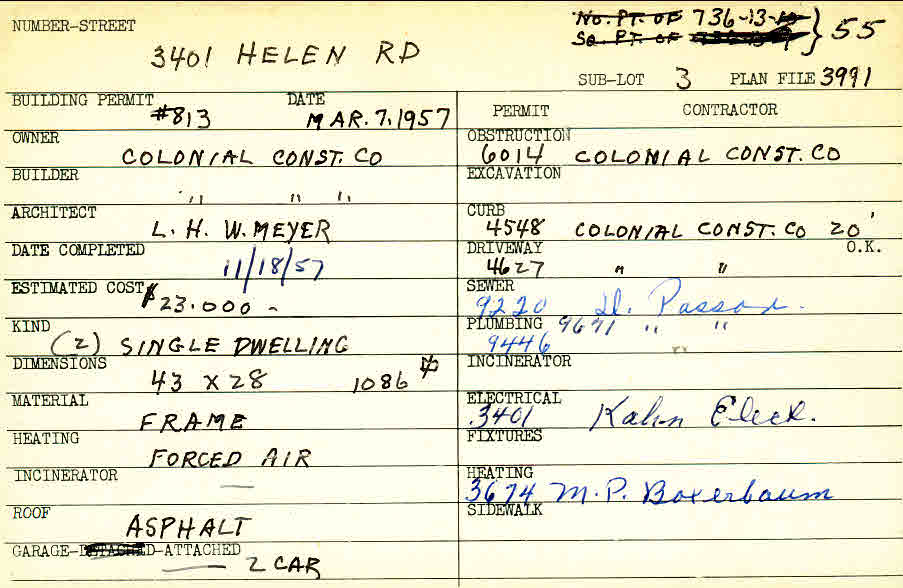 NUMBER-STREET
No. PT. OF 736-13-
So. PT. OF
} 55
3401 HELEN RD
SUB-LOT 3 PLAN FILE 3991
BUILDING PERMIT DATE
#813 MAR. 7, 1957
PERMIT CONTRACTOR
OWNER
COLONIAL CONST. CO
OBSTRUCTION
6014 COLONIAL CONST. CO
BUILDER
" " "
EXCAVATION
ARCHITECT
L. H. W. MEYER
CURB
4548 COLONIAL CONST. CO 20'
DATE COMPLETED
11/18/57
DRIVEWAY O.K.
4627 " "
ESTIMATED COST
$23.000 -
SEWER
9220
KIND
(2) SINGLE DWELLING
PLUMBING 9691 " "
9446 "
DIMENSIONS
43 X 28 1086
INCINERATOR
MATERIAL
FRAME
ELECTRICAL
3401 Kahn Elect.
HEATING
FORCED AIR
FIXTURES
INCINERATOR
—
HEATING
3674 M.P. Boxerbaum
ROOF
ASPHALT
SIDEWALK
GARAGE-DETACHED-ATTACHED
2 CAR